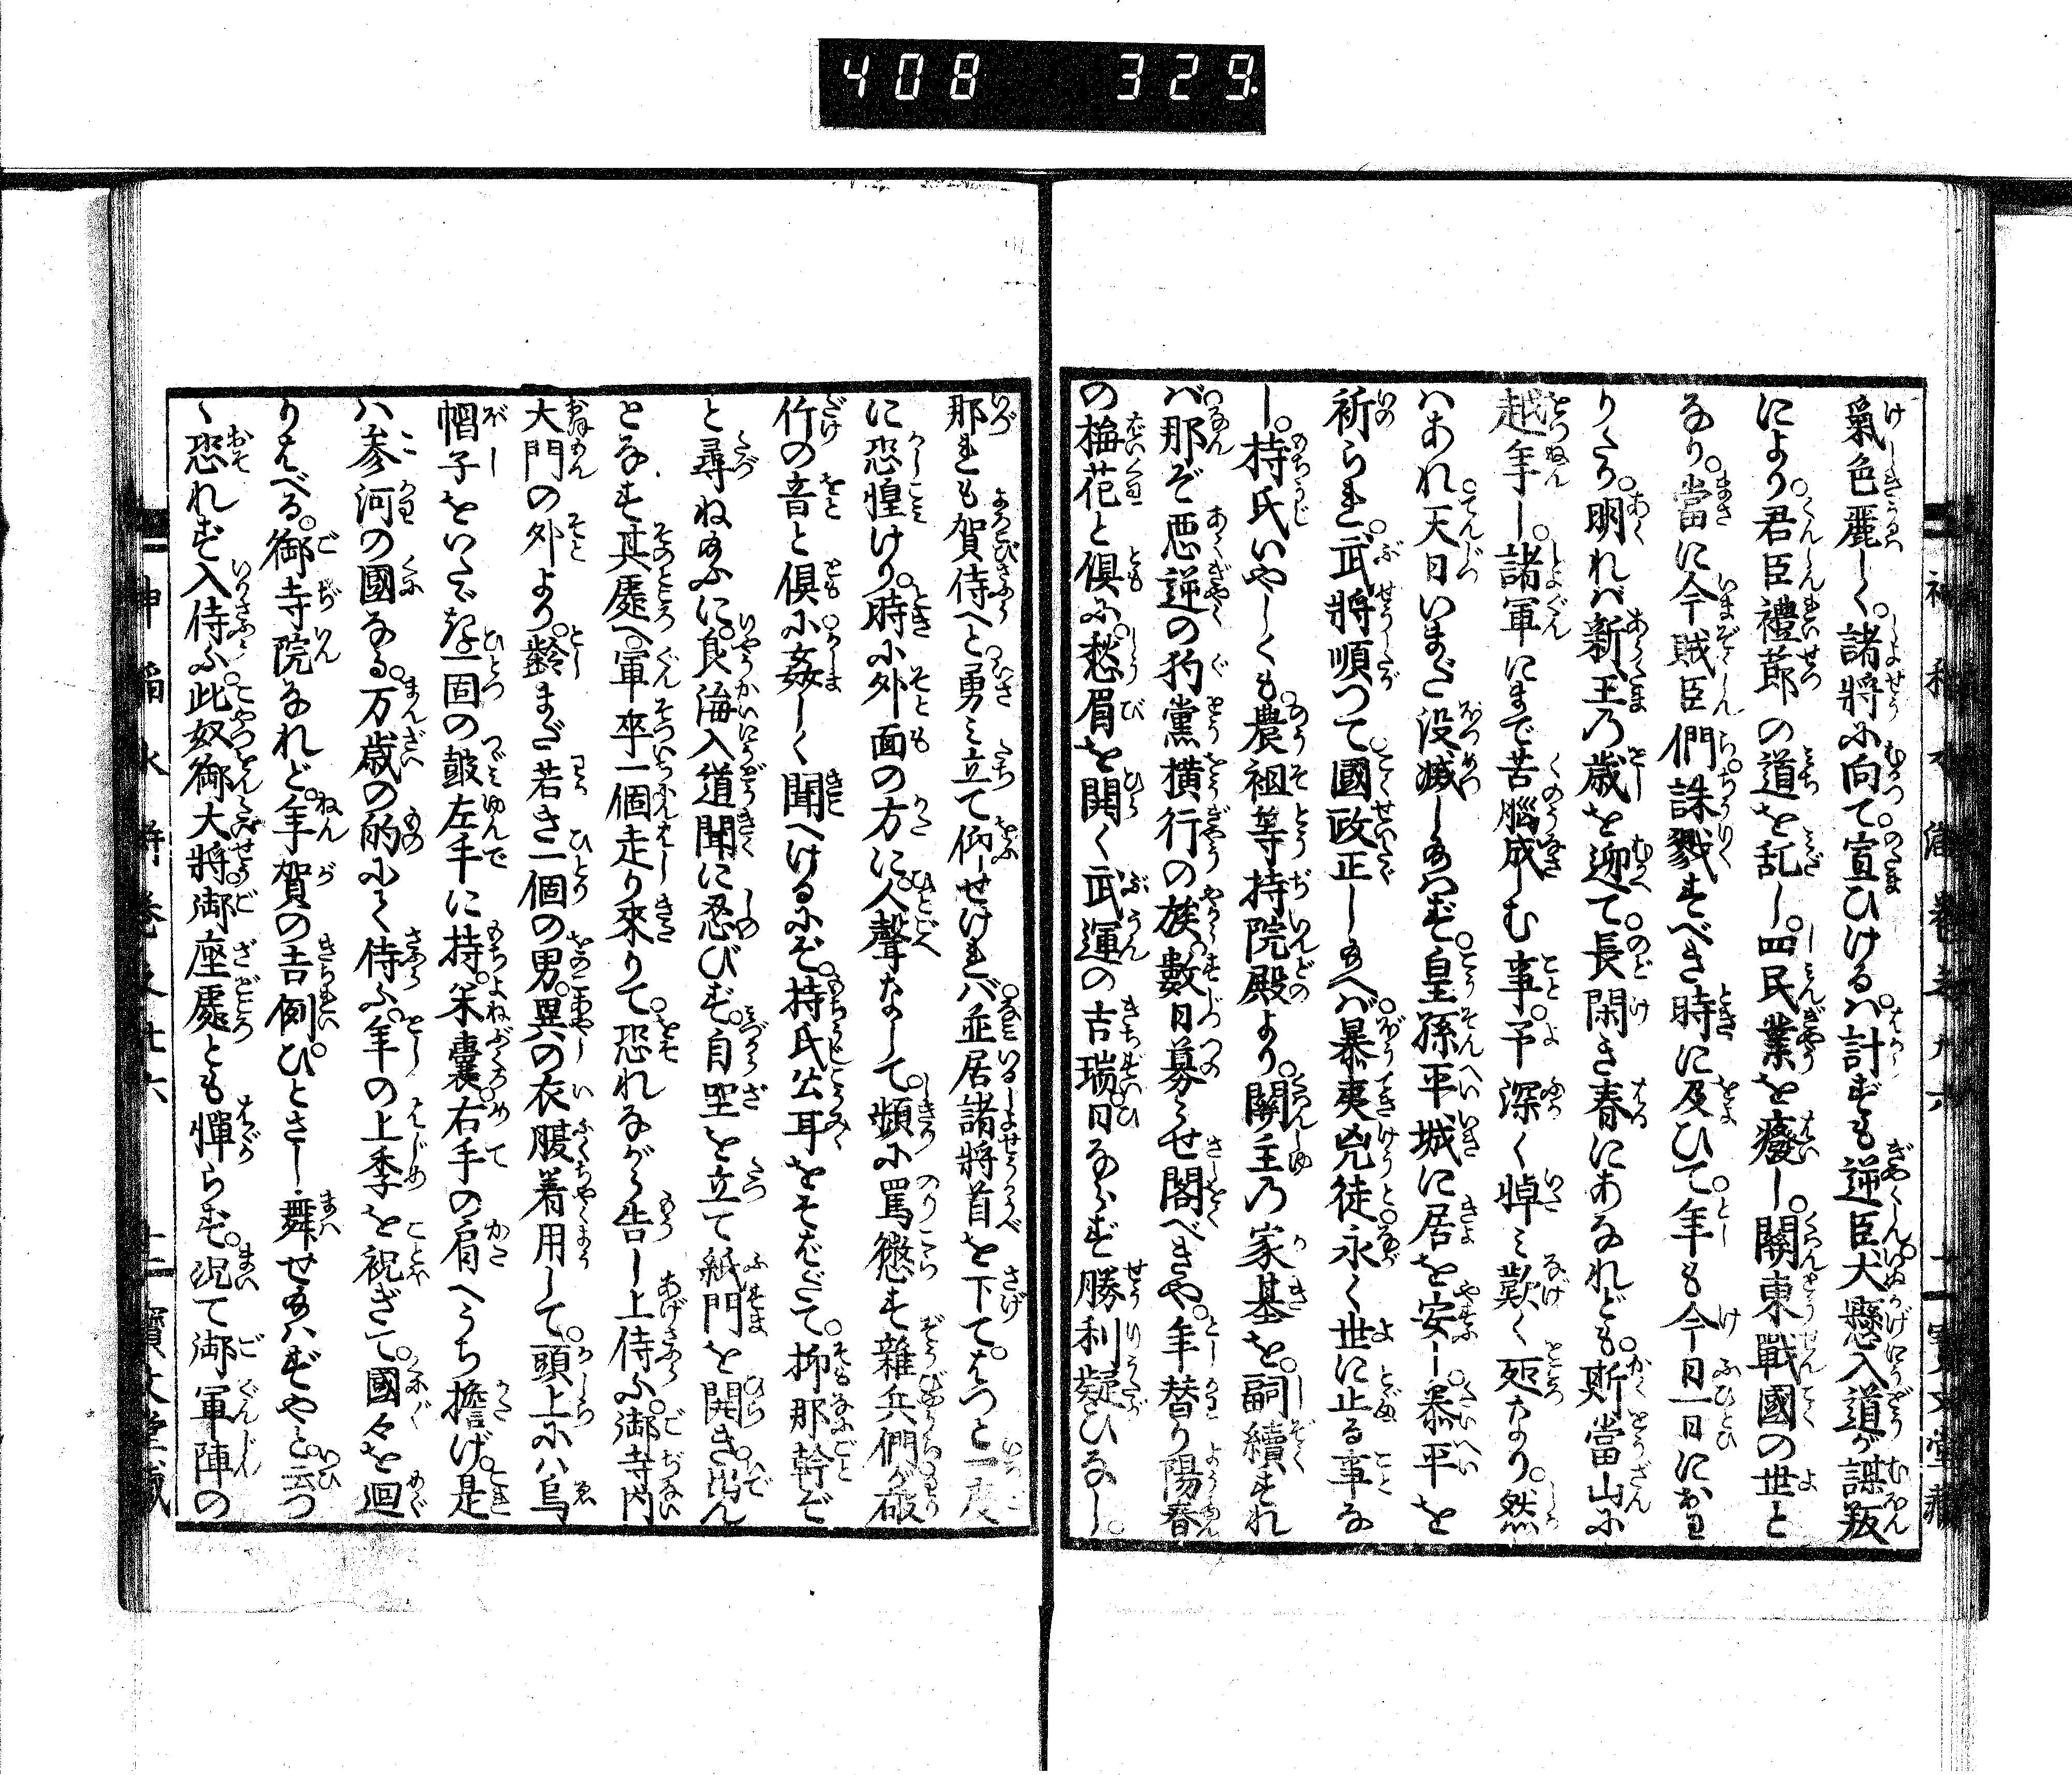 408 329
氣色麗しく。諸將に向て。宣ひけるハ。計ずも逆臣犬懸入道が謀叛
により。君臣禮節の道を乱し。四民業を癈し。關東戰國の世と
なり。當に今賊臣們。誅戮すべき時に及ひて。年も今日一日におは
りたり。明れバ新玉乃歳を迎へて。長閑き春にあなれども。斯當山に
越年し。諸軍にまで苦腦成しむ事。予深く悼ミ歎く処なり。然
ハあれ。天日いまだ没滅し給ハず。皇孫平城に居を安し。泰平を
祈らむ。武將順つて國政正し給へバ。暴夷兇徒永く世に止る事な
し。持氏いやしくも。農祖等持院殿より。關主乃家基を。詞續すれ
バ。那ぞ悪逆の狗黨横行の族。數日募らせ閣べきや。年替り陽春
の梅花と倶に。愁眉を開く武運の吉瑞。日ならず勝利疑ひなし。
那も賀侍へと勇ミ立て仰せけれバ。並居諸將首を下て。はつと一度
に恐惶けり。時に外面の方に。人聲なして。頻に罵懲す雜兵們が破
竹の音と倶に姦しく聞へけるにぞ。持氏公耳をそばだて。抑那幹ぞ
と尋ね給ふに。良海入道聞に忍びず。自座を立て紙門を開き出ん
となす其處へ。軍卒一個走り來りて。恐れながら告し上侍ふ。御寺内
大門の外より。齡まだ若き一個の男。異の衣腹着用して。頭上にハ烏
帽子をいたゞき。一固の皷左手に持。米嚢右手の肩へうち擔げ。是
ハ参河の國なる。万歳の的にて侍ふ。年の上季を祝ぎて。國々を廻
りはべる。御寺院なれど。年賀の吉例。ひとさし舞せ給ハずやと。云つ
ゝ恐れず入侍ふ。此奴御大將御座處とも憚らず。况て御軍陣の